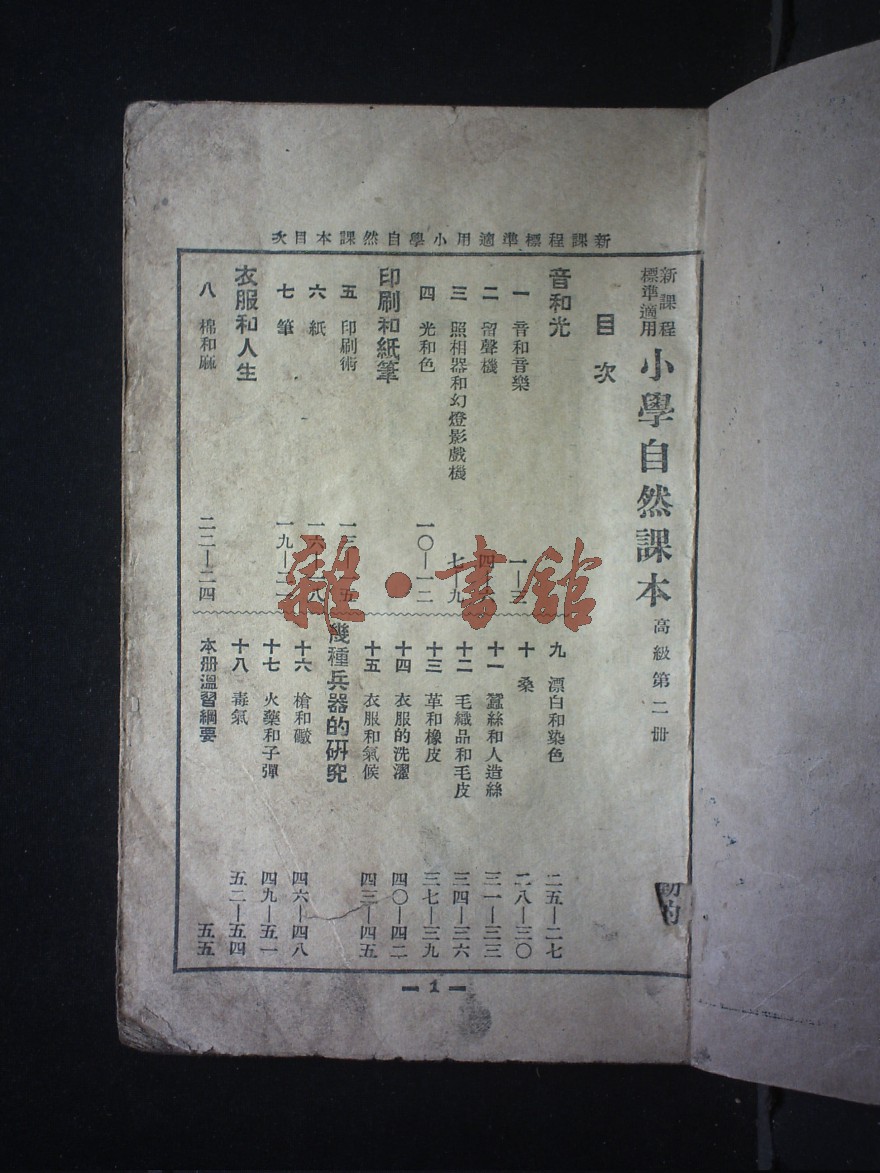 新課程標準適用小學自然課本目次
新課程
標準適用
小學自然課本 高級第二册
目次
音和光
一 音和音樂 一—三
二 留聲機 四—六
三 照相器和幻燈影戲機 七—九
四 光和色 一〇—一二
印刷和紙筆
五 印刷術 一三—一五
六 紙 一六—一八
七 筆 一九—二一
衣服和人生
八 棉和麻 二二—二四
九 漂白和染色 二五—二七
十 桑 二八—三〇
十一 蠶絲和人造絲 三一—三三
十二 毛織品和毛皮 三四—三六
十三 革和橡皮 三七—三九
十四 衣服的洗濯 四〇—四二
十五 衣服和氣候 四三—四五
幾種兵器的研究
十六 槍和礮 四六—四八
十七 火藥和子彈 四九—五一
十八 毒氣 五二—五四
本册溫習綱要 五五
1
雜·書館